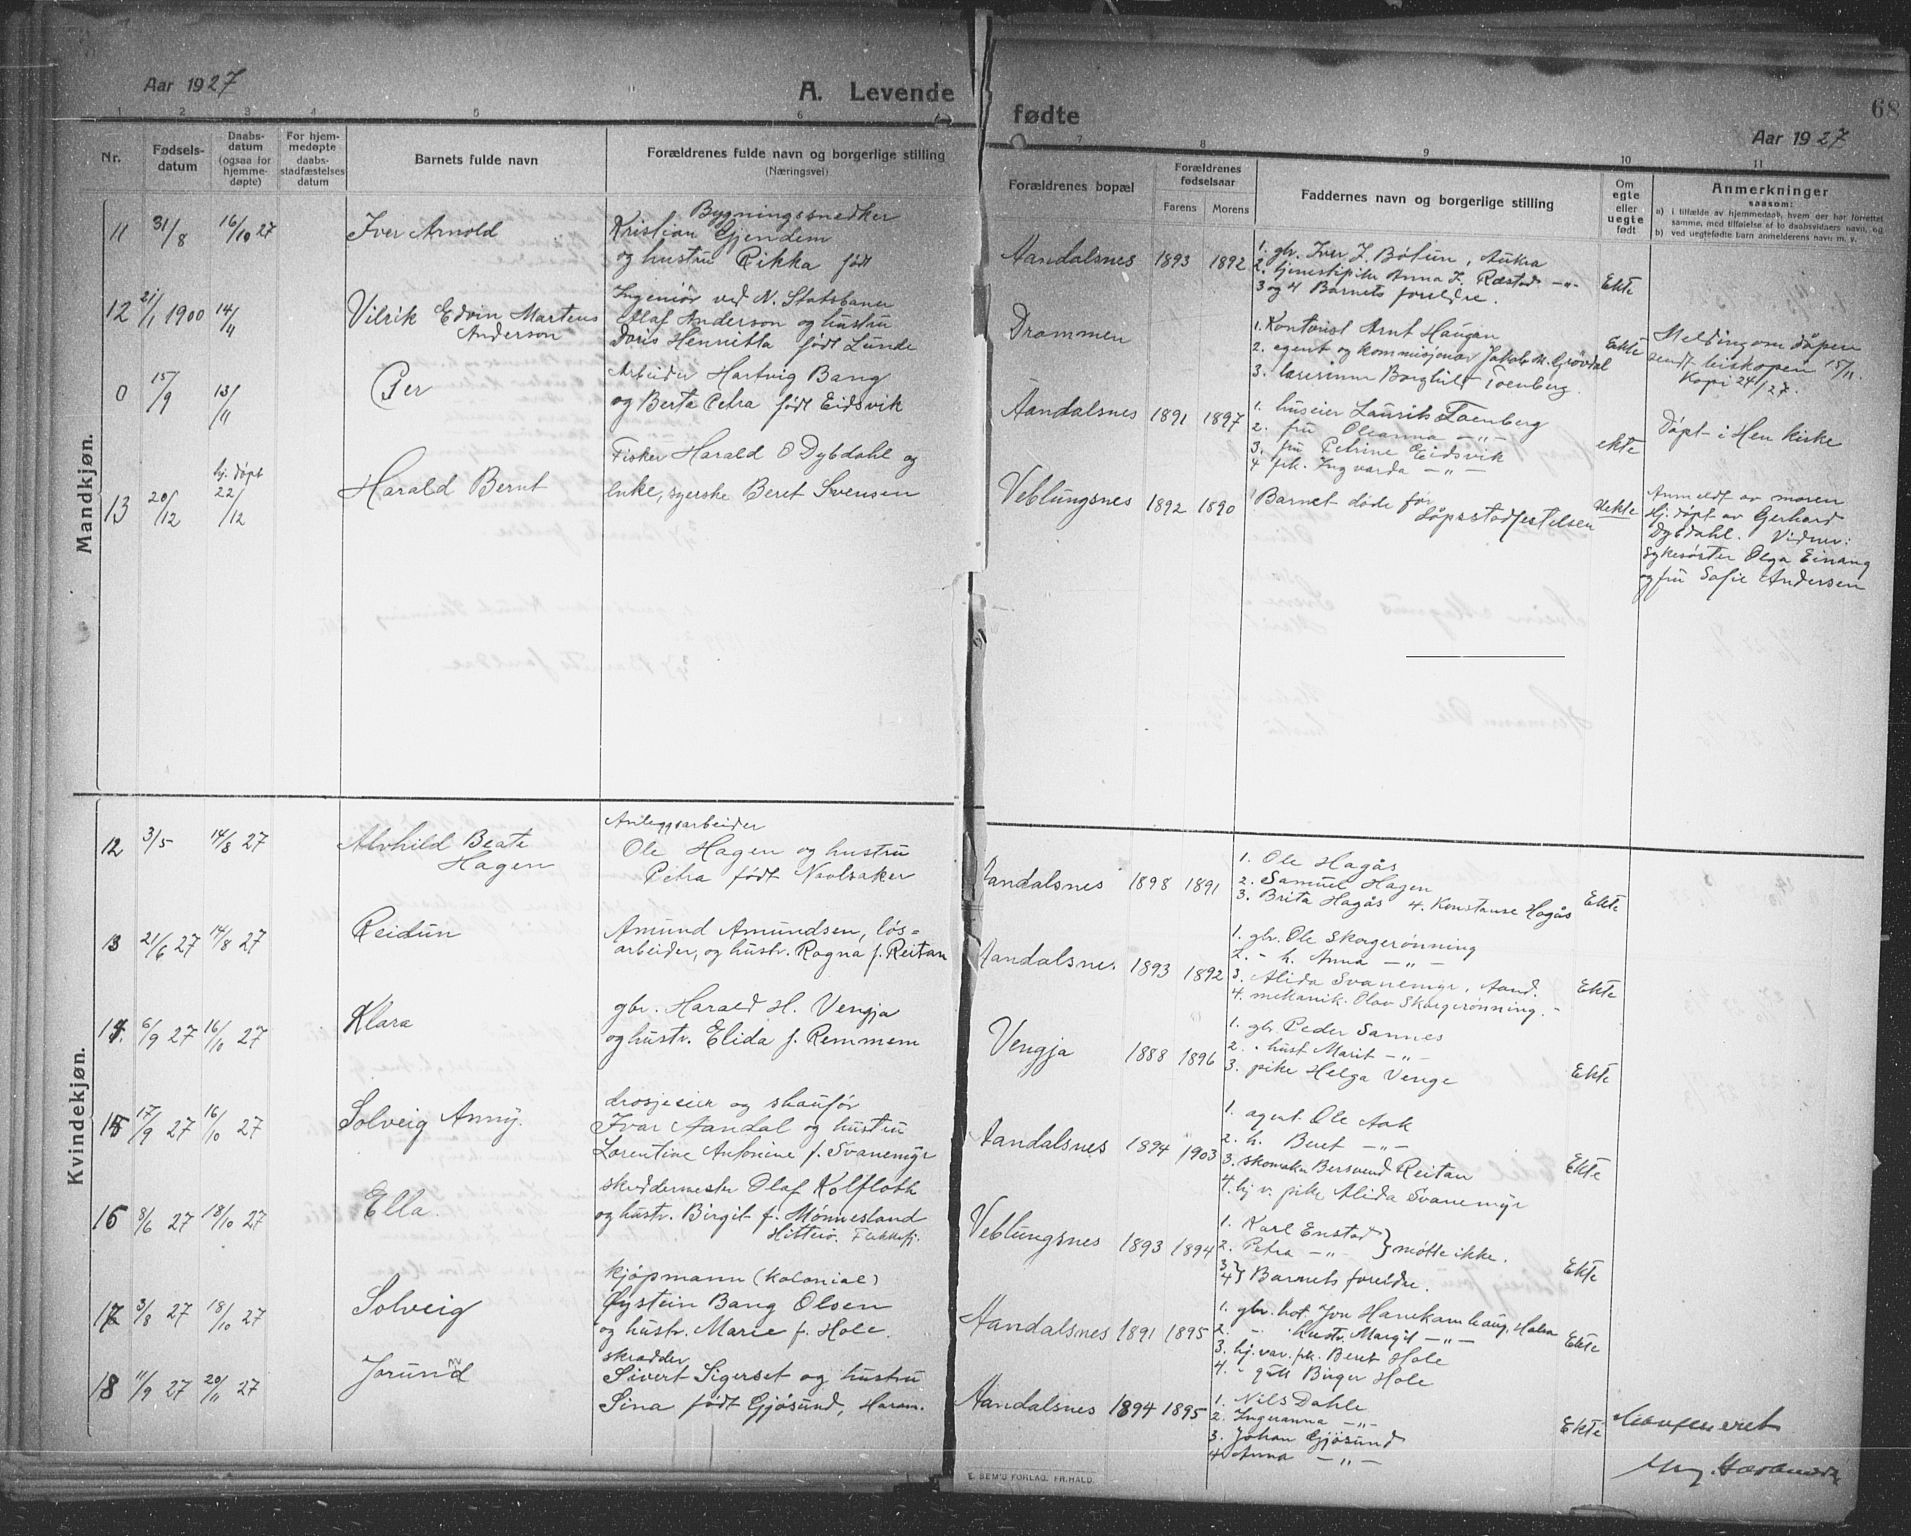 Aar 1927
A. Levende
1 2 3 4 5 6
Nr.
Fødsels-
datum
Daabs-
datum
(ogsaa for
hjemme-
døpte)
For hjem-
medøpte
daabs-
stadfæstelses
datum
Barnets fulde navn
Forældrenes fulde navn og borgerlige stilling
(Næringsvei)
Mandkjøn.
11 31/8 16/10 27 Iver Arnold
Bygningssnedker
Kristian Gjendem
og hustru Rikka født
12 21/1 1900 14/4 Vilrik Edvin Martens
Anderson
Ingeniør ved N. Statsbaner
Olaf Anderson og hustru
Doris Henrietta født Lunde
0 15/9 13/11 Per
Arbeider Hartvig Bang
og Berta Petra født Eidsvik
13 20/12 hj. døpt 22/12 Harald Bernt
Fisker Harald O Dybdahl og
enke, syerske Beret Svensen
Kvindekjøn.
12 3/5 14/8 27 Alvhild Beate
Hagen
Anleggsarbeider
Ole Hagen og hustru
Petra født Navlsaker
13 21/6 27 14/8 27 Reidun
Amund Amundsen, løs-
arbeider, og hustr. Ragna f. Reitan
14 6/9 27 16/10 27 Klara
gbr. Harald H. Vengja
og hustr. Elida f. Remmem
15 17/9 27 16/10 27 Solveig Anny.
drosjeeier og shauför
Ivar Aandal og hustru
Lorentine Antonine f. Svanemyr
16 8/6 27 18/10 27 Ella.
skreddermester Olaf Kolfloth
og hustr. Birgit f. Mønnesland
Hitterø. Flekkefj.
17 3/8 27 18/10 27 Solveig
kjøpmann (kolonial)
Øystein Bang Olsen
og hustr. Marie f. Hole.
18 11/9 27 20/11 27 Jorunn
skrædder
Sivert Sigerset og hustru
Sina født Gjøsund, Haram.
68
fødte
Aar 1927
7 8 9 10 11
Forældrenes bopæl
Forældrenes
fødselsaar
Farens Morens
Faddernes navn og borgerlige stilling
Om
egte
eller
uegte
født
Anmerkninger
saasom:
a) i tilfælde av hjemmedaab, hvem der har forrettet
samme, med tilføielse af to daabsvidners navn, og
b) ved uegtefødte barn anmelderens navn m. v.
Aandalsnes 1893 1892
1. gbr. Iver J. Bötun, Aukra
2. tjenestepike Anna J. Ræstad -"-
3 og 4 Barnets foreldre.
Ekte
Drammen
1. Kontorist Arnt Haugan
2. agent og kommisjonær Jakob M. Grövdal
3. lærerinne Borghild Toenberg.
Ekte
Melding om dåpen
sendt biskopen 15/11.
Kopi 24/ 27.
Aandalsnes 1891 1897
1. huseier Laurits Toenberg
2. fru Oleanna -"-
3. fru Petrine Eidsvik
4 frk. Ingvarda -"-
ekte
Döpt i Hen kirke
Veblungsnes 1892 1890
Barnet døde før
dåpsstadfestelsen
Uekte
Anmeldt av moren
Hj. døpt av Gerhard
Dybdahl. Vidner:
Sykesöster Olga Einang
og fru Sofie Andersen
Aandalsnes 1898 1891
1. Ole Hagås
2. Samuel Hagen
3. Brita Hagås 4. Konstanse Hagås
Ekte
Aandalsnes 1893 1892
1. gbr. Ole Skorgerønning
2. - h. Anna -"-
3. Alida Svanemyr, Aand.
4. mekanik. Olav Skorgerønning. -
Ekte
Vengja 1888 1896
1. gbr. Peder Sannes
2. - hust Marit -"-
3. pike Helga Venge
Ekte
Aandalsnes 1894 1903
1. agent Ole Aak
2. h. Beret -"-
3. skomaker Bersvend Reitan
4. hj v. pike Alida Svanemyr
Ekte
Veblungsnes 1893 1894
1. Karl Enstad
2. Petra -"- } møtte ikke.
3 4 } Barnets foreldre.
Ekte
Aandalsnes 1891 1895
1. gbr. hot. Jon Hanekamhaug, Halsa
2. - hustr. Margit -"-
3. hj. var. pk. Beret Hole
4. - gutt Birger Hole
Ekte
Aandalsnes 1894 1895
1. Nils Dahle
2. Ingeranna -"-
3. Johan Gjøsund
4 Anna -"-
Ekte
Konfereret
E. SEM'S FORLAG. FR.HALD.